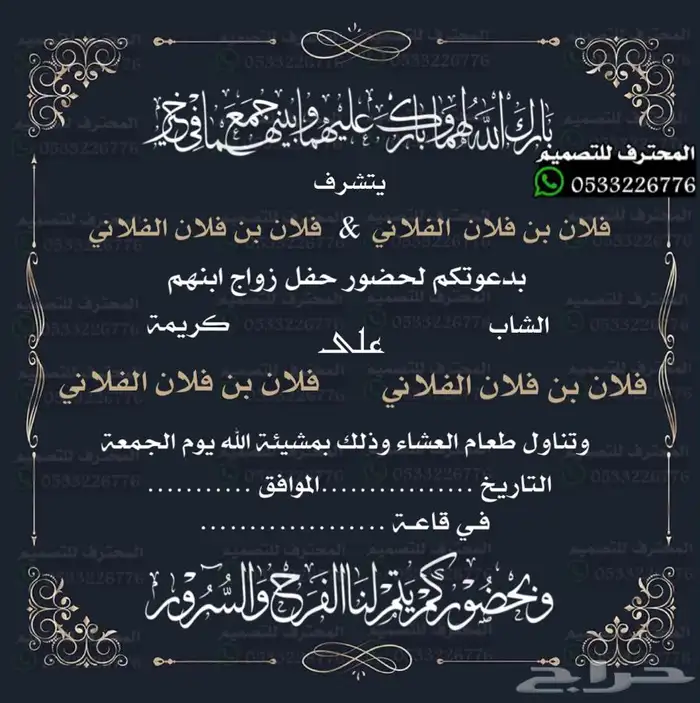 بارك الله لهما وبارك عليهما وبينهما جمعهما في خير
المحترف للتصميم
0533226776
يتشرف
فلان بن فلان الفلاني & فلان بن فلان الفلاني
بدعوتكم لحضور حفل زواج ابنهم
الشاب كريمة
على
فلان بن فلان الفلاني فلان بن فلان الفلاني
وتناول طعام العشاء وذلك بمشيئة الله يوم الجمعة
التاريخ ................الموافق ...........
في قاعة ...................
وبحضوركم يتم لنا الفرح والسرور
حراج